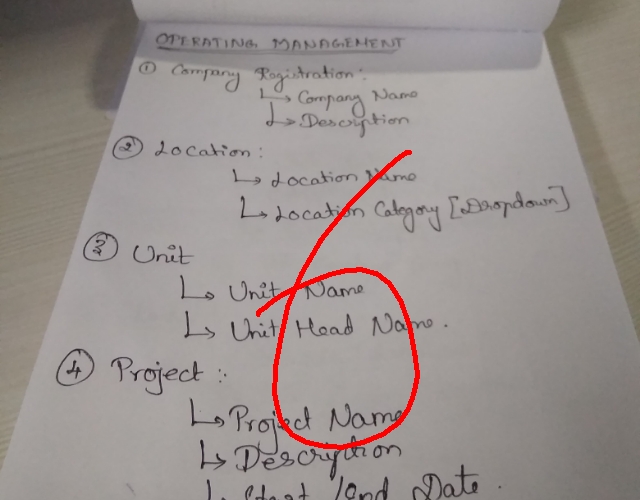 OPERATING MANAGEMENT
① Company Registration:
↳ Company Name
↳ Description
② Location:
↳ Location Name
↳ Location Category [Dropdown]
③ Unit
↳ Unit Name
↳ Unit Head Name.
④ Project:
↳ Project Name
↳ Description
↳ Start/End Date.